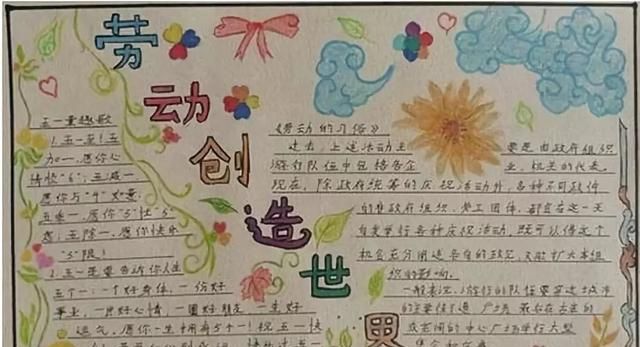 劳动创造世界
五一童趣歌
1.五一至!五
加一,愿你心
情快"6";五减一
愿你与"4"如意
五乘一,愿你"5"忧"5"
虑;五除一,愿你快乐
"5"限!
2.五一是要告诉你人生
五个一:一个好身体,一份好
事业,一片好心情,一圈好朋友,一生好
运气,愿你一生拥有5个一!祝五一快
《劳动的习俗》
过去,上述活动主要是由政府组织
游行队伍中包括各企业、机关的代表。
现在,除政府统筹的庆祝活动外,各种不同政体
的非政府组织、劳工团体,都会在这一天
自发举行各种庆祝活动,既可以借这个
机会充分阐述各自的政见,又能扩大本组
织的影响。
一般来说,游行的队伍要穿过城市
的主要街道、广场,最后在
或空阔的中心广场举行大型